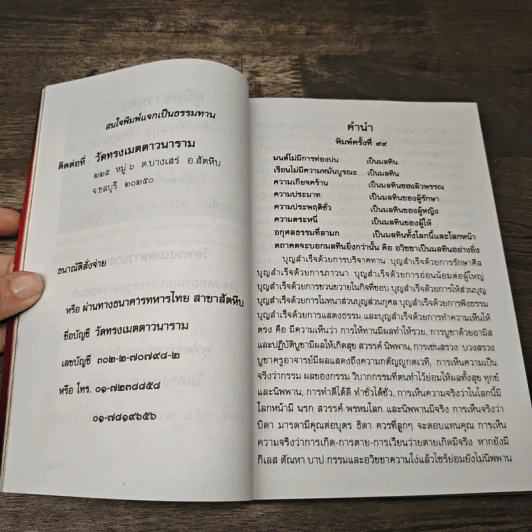 สนใจพิมพ์แจกเป็นธรรมทาน
ติดต่อที่ วัดทรงเมตตาวนาราม
๒๒๕ หมู่ ๖ ต.บางเสร่ อ.สัตหีบ
จ.ชลบุรี ๒๐๒๕๐
ธนาณัติสั่งจ่าย
หรือ ผ่านทางธนาคารทหารไทย สาขาสัตหีบ
ชื่อบัญชี วัดทรงเมตตาวนาราม
เลขบัญชี ๓๐๒-๒-๗๐๗๙๘-๒
หรือ โทร. ๐๑-๗๒๓๘๘๕๘
๐๑-๗๘๑๙๖๕๖
คำนำ
พิมพ์ครั้งที่ ๙๙
มนต์ไม่มีการท่องบ่น เป็นมลทิน
เรือนไม่มีความหมั่นบูรณะ เป็นมลทิน
ความเกียจคร้าน เป็นมลทินของผิวพรรณ
ความประมาท เป็นมลทินของผู้รักษา
ความประพฤติชั่ว เป็นมลทินของผู้หญิง
ความตระหนี่ เป็นมลทินของผู้ให้
อกุศลธรรมที่ลามก เป็นมลทินทั้งโลกนี้และโลกหน้า
ตถาคตจะบอกมลทินยิ่งกว่านั้น คือ อวิชชาเป็นมลทินอย่างยิ่ง
บุญสำเร็จด้วยการบริจาคทาน บุญสำเร็จด้วยการรักษาศีล
บุญสำเร็จด้วยการภาวนา บุญสำเร็จด้วยการอ่อนน้อมต่อผู้ใหญ่
บุญสำเร็จด้วยการขวนขวายในกิจที่ชอบ บุญสำเร็จด้วยการให้ส่วนบุญ
บุญสำเร็จด้วยการโมทนาส่วนบุญส่วนกุศล บุญสำเร็จด้วยการฟังธรรม
บุญสำเร็จด้วยการแสดงธรรม และบุญสำเร็จด้วยการทำความเห็นให้
ตรง คือ มีความเห็นว่า การให้ทานมีผลทำให้รวย, การบูชาด้วยอามิส
และปฏิบัติบูชามีผลให้เกิดสุข สวรรค์ นิพพาน, การเซ่นสรวง บวงสรวง
บูชาครูอาจารย์มีผลแสดงถึงความกตัญญูกตเวที, การเห็นความเป็น
จริงว่ากรรม ผลของกรรม วิบากกรรมที่ตนทำไว้ย่อมให้ผลทั้งสุข ทุกข์
และนิพพาน, การทำดีได้ดี ทำชั่วได้ชั่ว, การเห็นจริงว่าในโลกนี้มี
โลกหน้ามี นรก สวรรค์ พรหมโลก และนิพพานมีจริง การเห็นจริงว่า
บิดา มารดามีคุณต่อบุตร ธิดา ควรที่ลูกๆ จะตอบแทนคุณ การเห็น
ความจริงว่าการเกิด-การตาย-การเวียนว่ายตายเกิดมีจริง หากยังมี
กิเลส ตัณหา บาป กรรมและอวิชชาความโง่แล้วไซร้ย่อมยังไม่นิพพาน